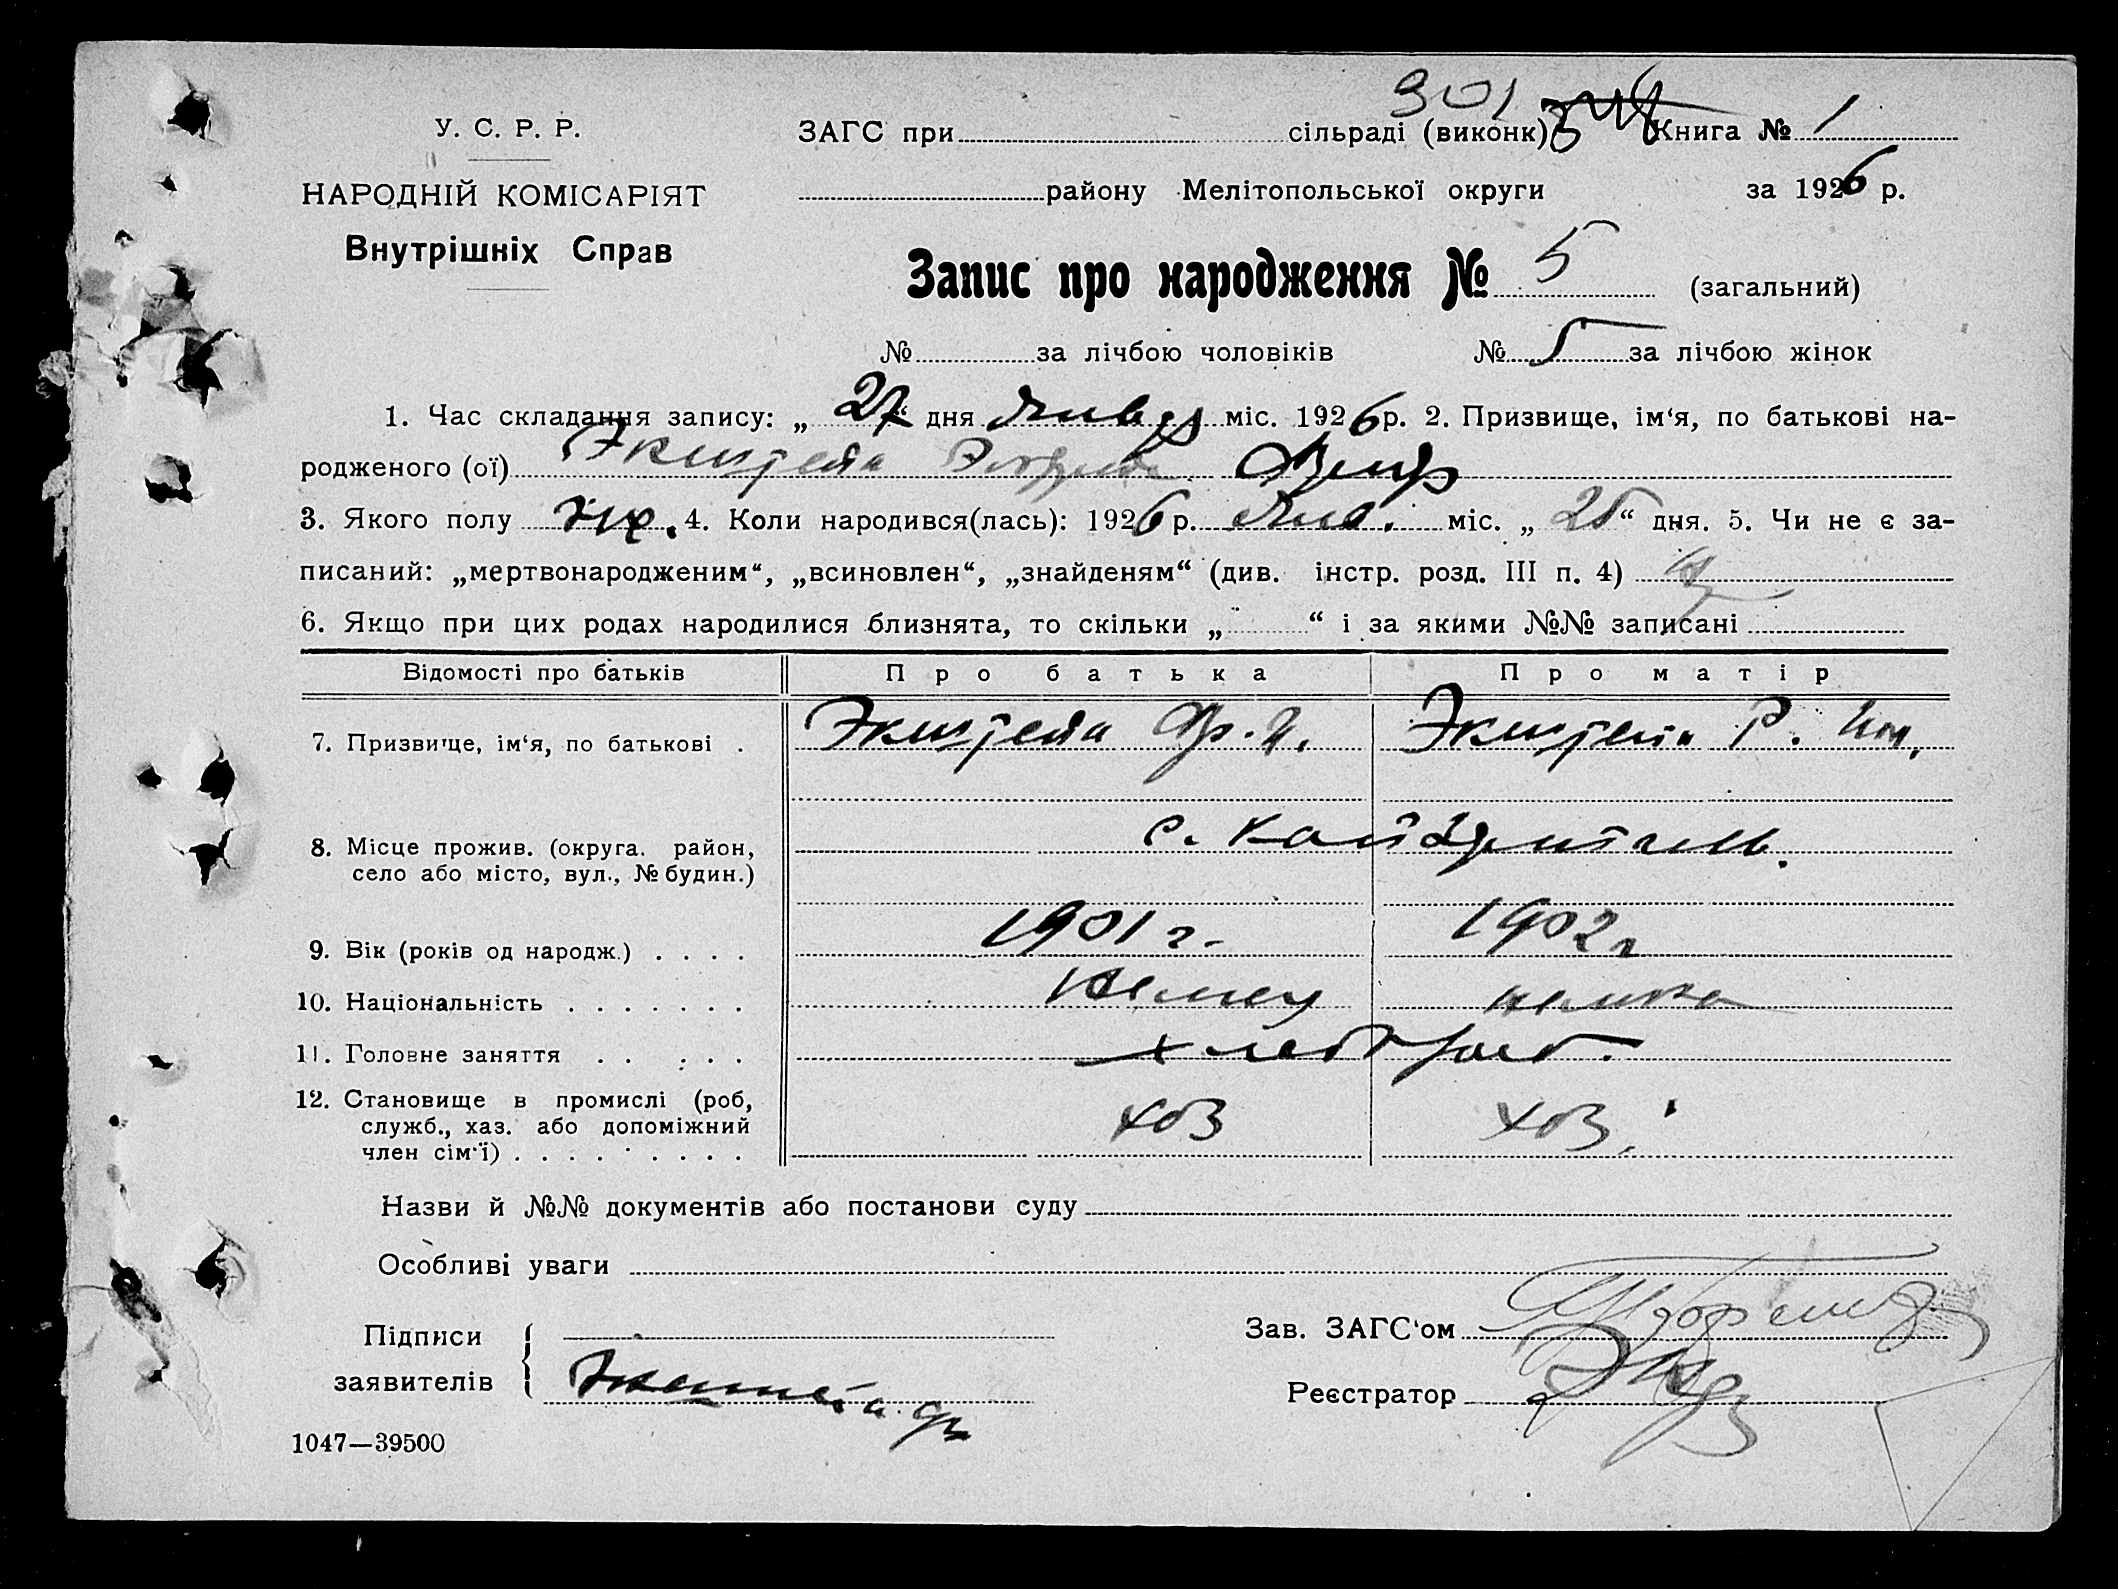 301
У. С. Р. Р.
ЗАГС при сільраді (виконк) Книга № 1
НАРОДНІЙ КОМІСАРІЯТ
району Мелітопольської округи за 1926 р.
Внутрішніх Справ
Запис про народження № 5 (загальний)
№ за лічбою чоловіків № 5 за лічбою жінок
1. Час складання запису: „27“ дня Января міс. 1926 р. 2. Призвище, ім‘я, по батькові на-
родженого (ої) Экштейн
3. Якого полу 4. Коли народився(лась): 1926 р. Янв. міс. „25“ дня. 5. Чи не є за-
писаний: „мертвонародженим“, „всиновлен“, „знайденям“ (див. інстр. розд. III п. 4)
6. Якщо при цих родах народилися близнята, то скільки „ “ і за якими №№ записані
Відомості про батьків Про батька Про матір
7. Призвище, ім‘я, по батькові . Экштейн Фр. Экштейн Р.
8. Місце прожив. (округа. район,
село або місто, вул., № будин.)
с.
9. Вік (років од народж.) . . . . 1901 г. 1902 г
10. Національність . . . . . . . Немец немка
11. Головне заняття . . . . . . хлебороб.
12. Становище в промислі (роб,
служб., хаз. або допоміжний
член сім‘ї) . . . . . . . . . хоз хоз.
Назви й №№ документів або постанови суду
Особливі уваги
Підписи
заявителів
Зав. ЗАГС‘ом
Реєстратор
1047—39500